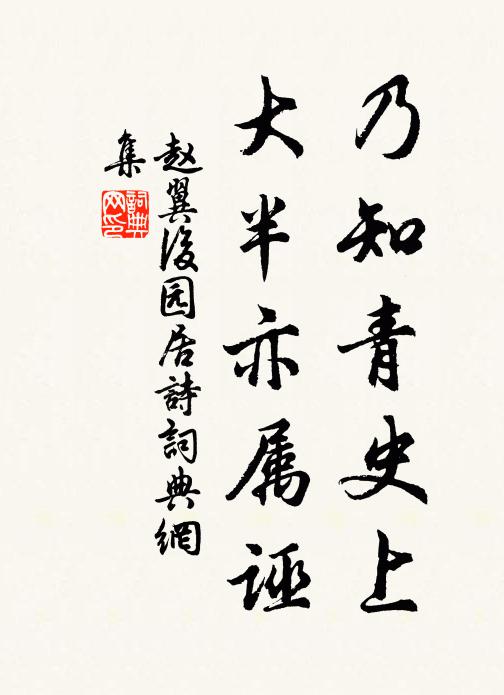 乃知青史上
大半亦属诬
赵翼後园居詩詞典網
集
詞典网印